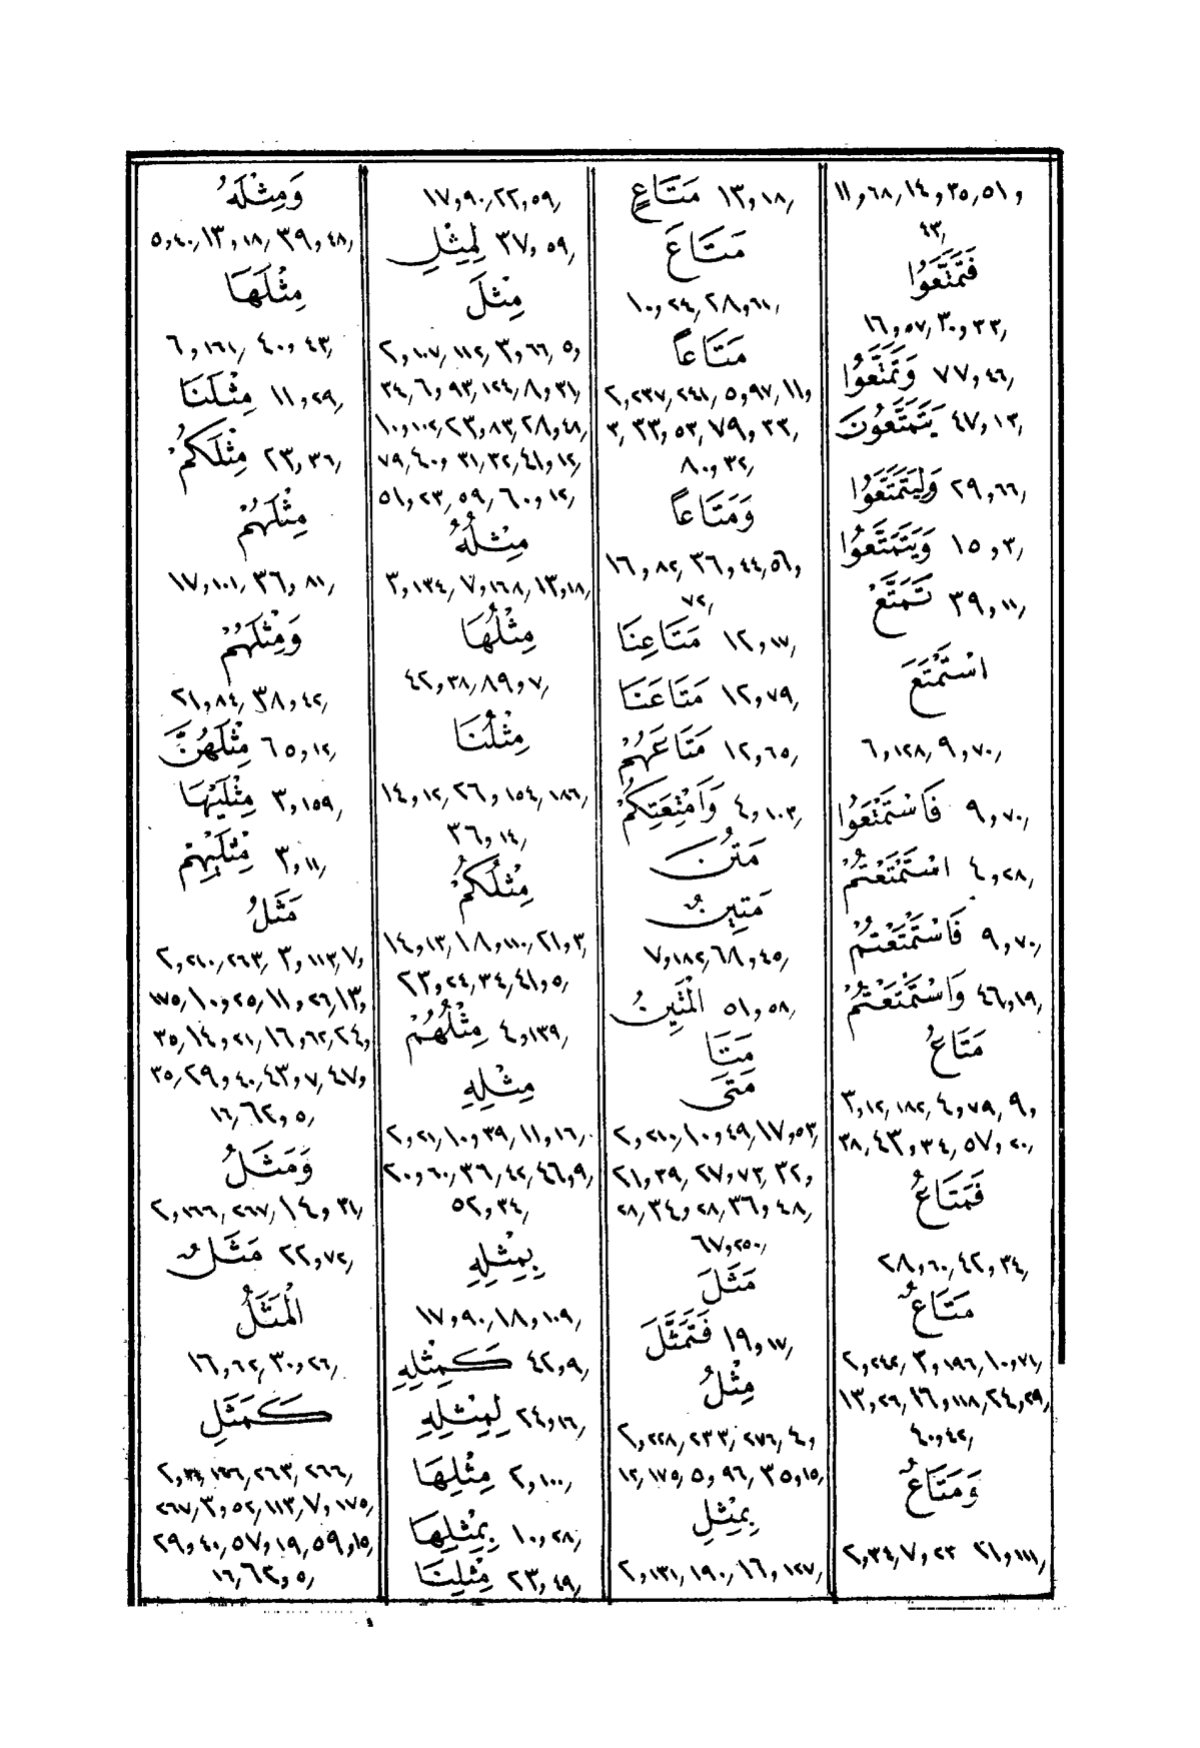 ١١,٦٨/١٤,٣٥/٥١,
٤٣/
فَتَمَتَّعُوا
١٦,٥٧/٣٠,٣٣/
٧٧,٤٦/ وَتَمَتَّعُوا
٤٧,١٢/ يَتَمَتَّعُونَ
٢٩,٦٦/ وَلِيَتَمَتَّعُوا
١٥,٣/ وَيَتَمَتَّعُوا
٣٩,١١/ تَمَتَّعْ
اسْتَمْتَعَ
٦,١٢٨/٩,٧٠/
٩,٧٠/ فَاسْتَمْتَعُوا
٤,٢٨/ اسْتَمْتَعْتُمْ
٩,٧٠/ فَاسْتَمْتَعْتُمْ
٤٦,١٩/ وَاسْتَمْتَعْتُمْ
مَتَاعُ
٣,١٢/١٨٢/٤,٧٩/٩,
٣٨/٤٣,٣٤/٥٧,٢٠/
فَمَتَاعُ
٢٨,٦٠/٤٢,٣٤/
مَتَاعٌ
٢,٢٤٢/٣,١٩٦/١٠,٧١/
١٣,٢٦/١٦,١١٨/٢٤,٢٩/
٤٠,٤٢/
وَمَتَاعٌ
٢,٣٤/٧,٢٣ ٢١,١١١/
١٣,١٨/ مَتَاعٍ
مَتَاعَ
١٠,٢٤/٢٨,٦١/
مَتَاعاً
٢,٢٣٧/٢٤١/٥,٩٧/١١,
٣/٣٣,٥٣/٧٩,٣٣/
٨٠,٣٢/
وَمَتَاعاً
١٦,٨٢/٣٦,٤٤/٥٦,
٧٢/
١٢,١٧/ مَتَاعِنَا
١٢,٧٩/ مَتَاعَنَا
١٢,٦٥/ مَتَاعَهُمْ
٤,١٠٣/ وَأَمْتِعَتِكُمْ
مَتُنَ
مَتِينٌ
٧,١٨٢/٦٨,٤٥/
٥١,٥٨/ الْمَتِينُ
مَتَا
مَتَى
٢,٢١٠/١٠,٤٩/١٧,٥٣/
٢١,٣٩/٢٧,٧٣/٣٢,
٢٨/٣٤,٢٨/٣٦,٤٨/
٦٧,٢٥٠/
مَثَلَ
١٩,١٧/ فَتَمَثَّلَ
مِثْلُ
٢,٢٢٨/٢٣٣/٢٧٦/٤,
١٢/١٧٥/٥,٩٦/٣٥,١٥/
بِمِثْلِ
٢,١٣١/١٩٠/١٦,١٢٧/
١٧,٩٠/٢٢,٥٩/
٣٧,٥٩/ لِمِثْلِ
مِثْلَ
٢,١٠٧/١١٢/٣,٦٦/٥,
٣٤/٦,٩٣/١٢٤/٨,٣١/
١٠,١٠٢/٢٣,٨٣/٢٨,٤٨/
٧٩/٤٠,٣١/٣٢/٤١,١٢/
٥١,٢٣/٥٩/٦٠,١٢/
مِثْلُهُ
٣,١٣٤/٧,١٦٨/١٣,١٨/
مِثْلُهَا
٤٢,٣٨/٨٩,٧/
مِثْلُنَا
١٤,١٢/٢٦,١٥٤/١٨٦/
٣٦,١٤/
مِثْلُكُمْ
١٤,١٣/١٨,١١٠/٢١,٣/
٢٣,٢٤/٣٤/٤١,٥/
٤,١٣٩/ مِثْلُهُمْ
مِثْلِهِ
٢,٢١/١٠,٣٩/١١,١٦/
٢٠,٦٠/٣٦,٤٢/٤٦,٩/
٥٢,٣٤/
بِمِثْلِهِ
١٧,٩٠/١٨,١٠٩/
٤٢,٩/ كَمِثْلِهِ
٢٤,١٦/ لِمِثْلِهِ
٢,١٠٠/ مِثْلِهَا
١٠,٢٨/ بِمِثْلِهَا
٢٣,٤٩/ مِثْلِنَا
وَمِثْلَهُ
٥,٤٠/١٣,١٨/٣٩,٤٨/
مِثْلَهَا
٦,١٦١/٤٠,٤٣/
١١,٢٩/ مِثْلَنَا
٢٣,٣٦/ مِثْلَكُمْ
مِثْلَهُمْ
١٧,١٠١/٣٦,٨١/
وَمِثْلَهُمْ
٢١,٨٤/٣٨,٤٢/
٦٥,١٢/ مِثْلَهُنَّ
٣,١٥٩/ مِثْلَيْهَا
٣,١١/ مِثْلَيْهِمْ
مَثَلُ
٢,٢١٠/٢٦٣/٣,١١٣/٧,
١٧٥/١٠,٢٥/١١,٢٦/١٣,
٣٥/١٤,٢١/١٦,٦٢/٢٤,
٣٥/٢٩,٤٠/٤٣,٧/٤٧,
١٦/٦٢,٥/
وَمَثَلُ
٢,١٦٦/٢٦٧/١٤,٣١/
٢٢,٧٢/ مَثَلٌ
الْمَثَلُ
١٦,٦٢/٣٠,٢٦/
كَمَثَلِ
٢٦٣/٢٦٦/
٢٦٧/٣,٥٢/١١٣/٧,١٧٥/
٢٩,٤٠/٥٧,١٩/٥٩,١٥/
١٦/٦٢,٥/